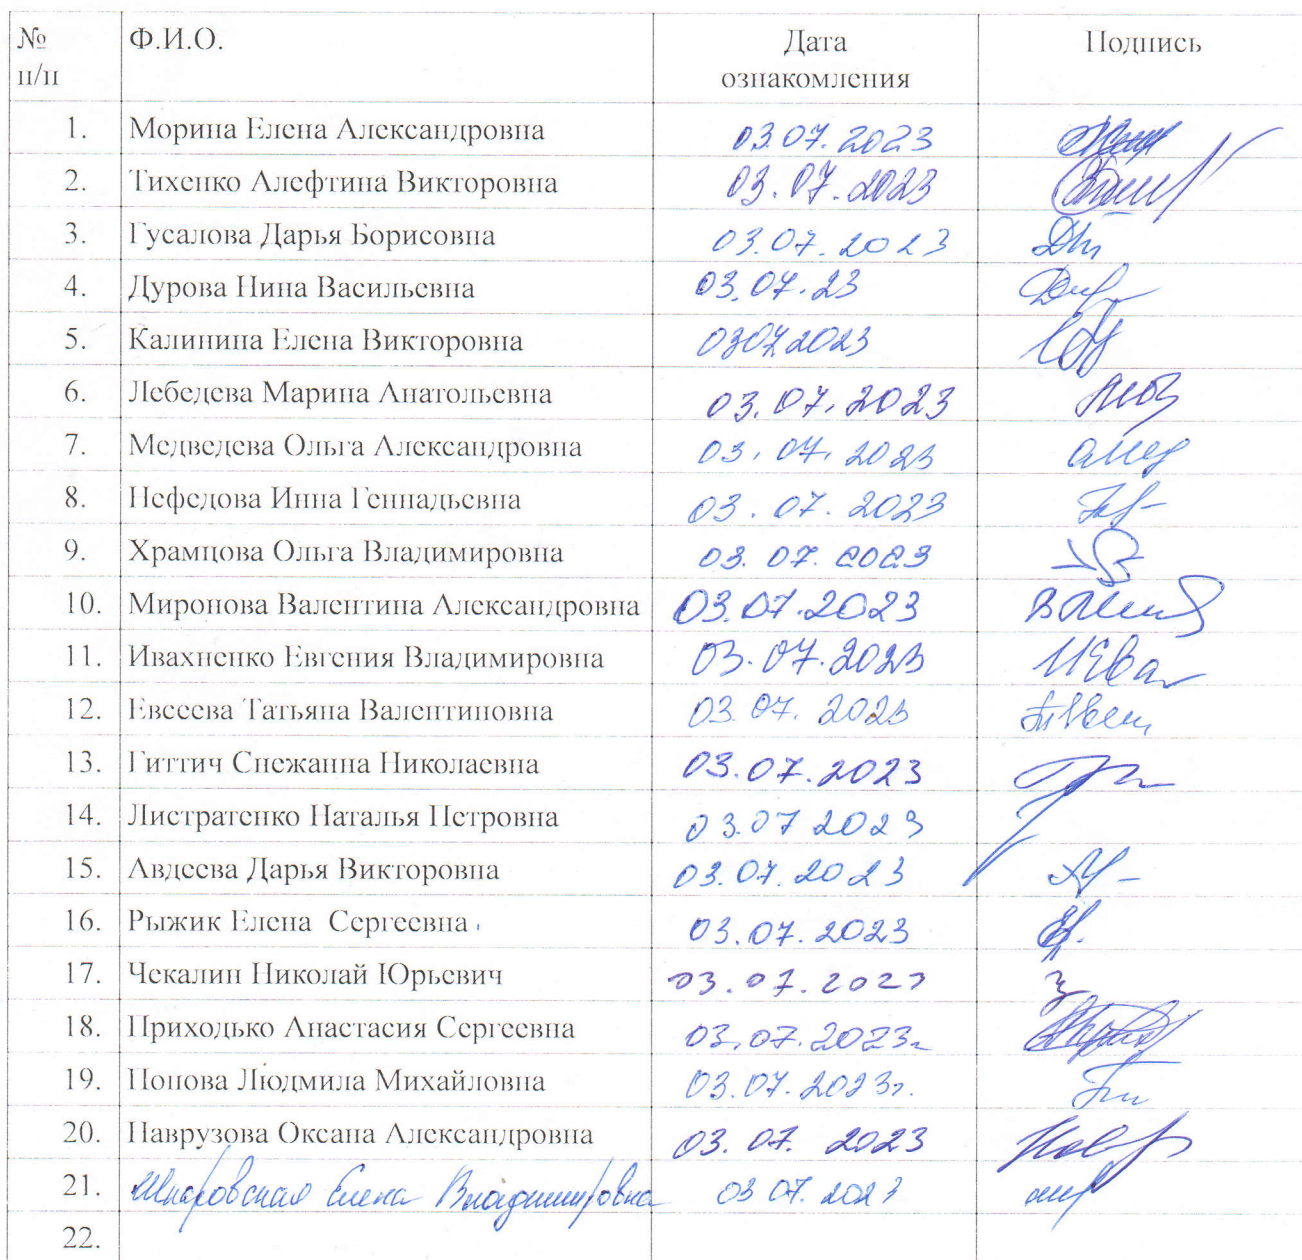 № Ф.И.О. Дата Подпись
п/п ознакомления
1. Морина Елена Александровна 03.07.2023
2. Тихенко Алефтина Викторовна 03.07.2023
3. Гусалова Дарья Борисовна 03.07.2023
4. Дурова Нина Васильевна 03.07.23
5. Калинина Елена Викторовна 03072023
6. Лебедева Марина Анатольевна 03.07.2023
7. Медведева Ольга Александровна 03.07.2023
8. Нефедова Инна Геннадьевна 03.07.2023
9. Храмцова Ольга Владимировна 03.07.2023
10. Миронова Валентина Александровна 03.07.2023
11. Ивахненко Евгения Владимировна 03.07.2023
12. Евсеева Татьяна Валентиновна 03.07.2023
13. Гиттич Снежанна Николаевна 03.07.2023
14. Листратенко Наталья Петровна 03.07 2023
15. Авдеева Дарья Викторовна 03.07.2023
16. Рыжик Елена Сергеевна 03.07.2023
17. Чекалин Николай Юрьевич 03.07.2023
18. Приходько Анастасия Сергеевна 03.07.2023г
19. Попова Людмила Михайловна 03.07.2023г.
20. Наврузова Оксана Александровна 03.07.2023
21. Елена Владимировна 03 07.2023
22.